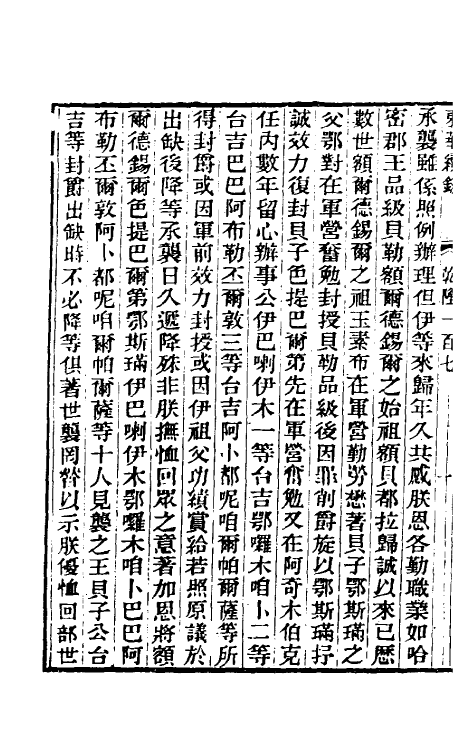 承襲雖係照例辦理但伊等來歸年久共感朕恩各勤職業如哈
密郡王品級貝勒額爾德錫爾之始祖額貝都拉歸誠以來已歷
數世額爾德錫爾之祖玉素布在軍營勤勞懋著貝子鄂斯璊之
父鄂對在軍營奮勉封授貝勒品級後因罪削爵旋以鄂斯璊抒
誠效力復封貝子色提巴爾第先在軍營奮勉又在阿奇木伯克
任內數年留心辦事公伊巴喇伊木一等台吉鄂囉木咱卜二等
台吉巴巴阿布勒丕爾敦三等台吉阿卜都呢咱爾帕爾薩等所
得封爵或因軍前效力封授或因伊祖父功績賞給若照原議於
出缺後降等承襲日久遞降殊非朕撫恤回眾之意著加恩將額
爾德錫爾色提巴爾第鄂斯璊伊巴喇伊木鄂囉木咱卜巴巴阿
布勒丕爾敦阿卜都呢咱爾帕爾薩等十人見襲之王貝子公台
吉等封爵出缺時不必降等俱著世襲罔替以示朕優恤回部世